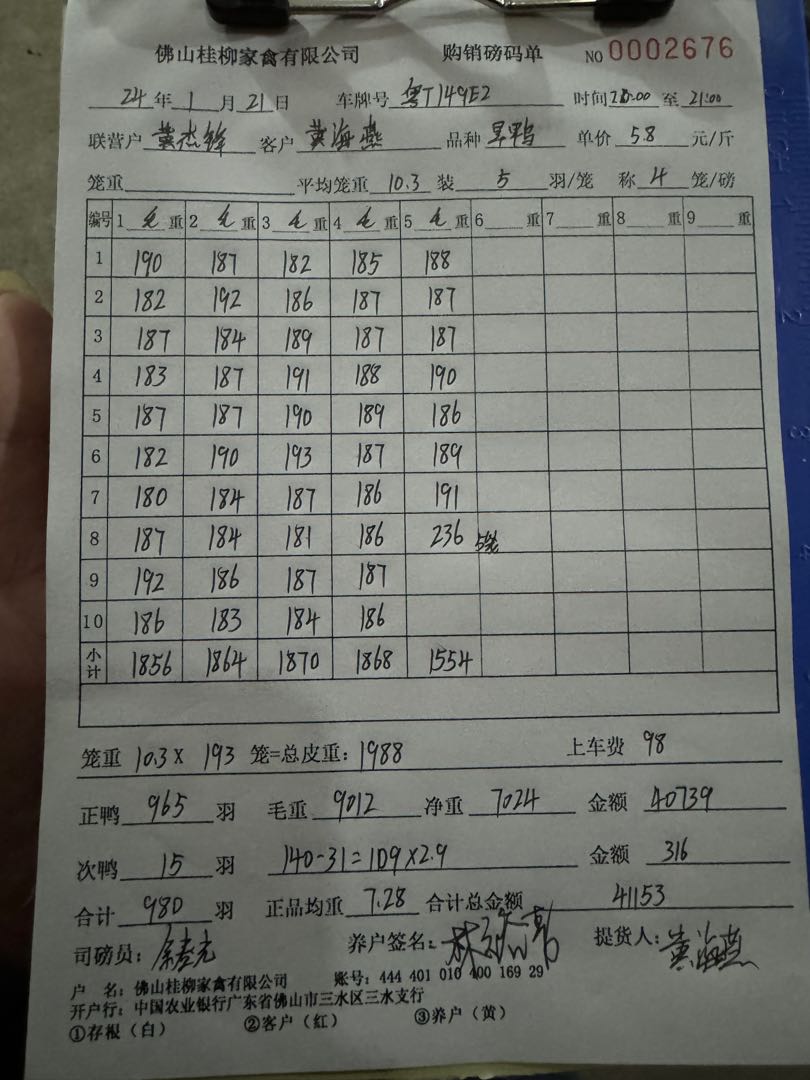 佛山桂柳家禽有限公司 购销磅码单 NO 0002676
24 年 1 月 21 日 车牌号 粤T149E2 时间 至 21:00
联营户 黄杰锋 客户 黄海燕 品种 旱鸭 单价 5.8 元/斤
笼重 平均笼重 10.3 装 5 羽/笼 称 4 笼/磅
编号 1 毛 重 2 毛 重 3 毛 重 4 毛 重 5 毛 重 6 重 7 重 8 重 9 重
1 190 187 182 185 188
2 182 192 186 187 187
3 187 184 189 187 187
4 183 187 191 188 190
5 187 187 190 189 186
6 182 190 193 187 189
7 180 184 187 186 191
8 187 184 181 186 236 5笼
9 192 186 187 187
10 186 183 184 186
小计 1856 1864 1870 1868 1554
笼重 10.3 X 193 笼=总皮重: 1988 上车费 98
正鸭 965 羽 毛重 9012 净重 7024 金额 40739
次鸭 15 羽 140-31=109X2.9 金额 316
合计 980 羽 正品均重 7.28 合计总金额 41153
司磅员: 养户签名: 提货人: 黄海燕
户 名: 佛山桂柳家禽有限公司 账号: 444 401 010 400 169 29
开户行: 中国农业银行广东省佛山市三水区三水支行
①存根(白) ②客户(红) ③养户(黄)